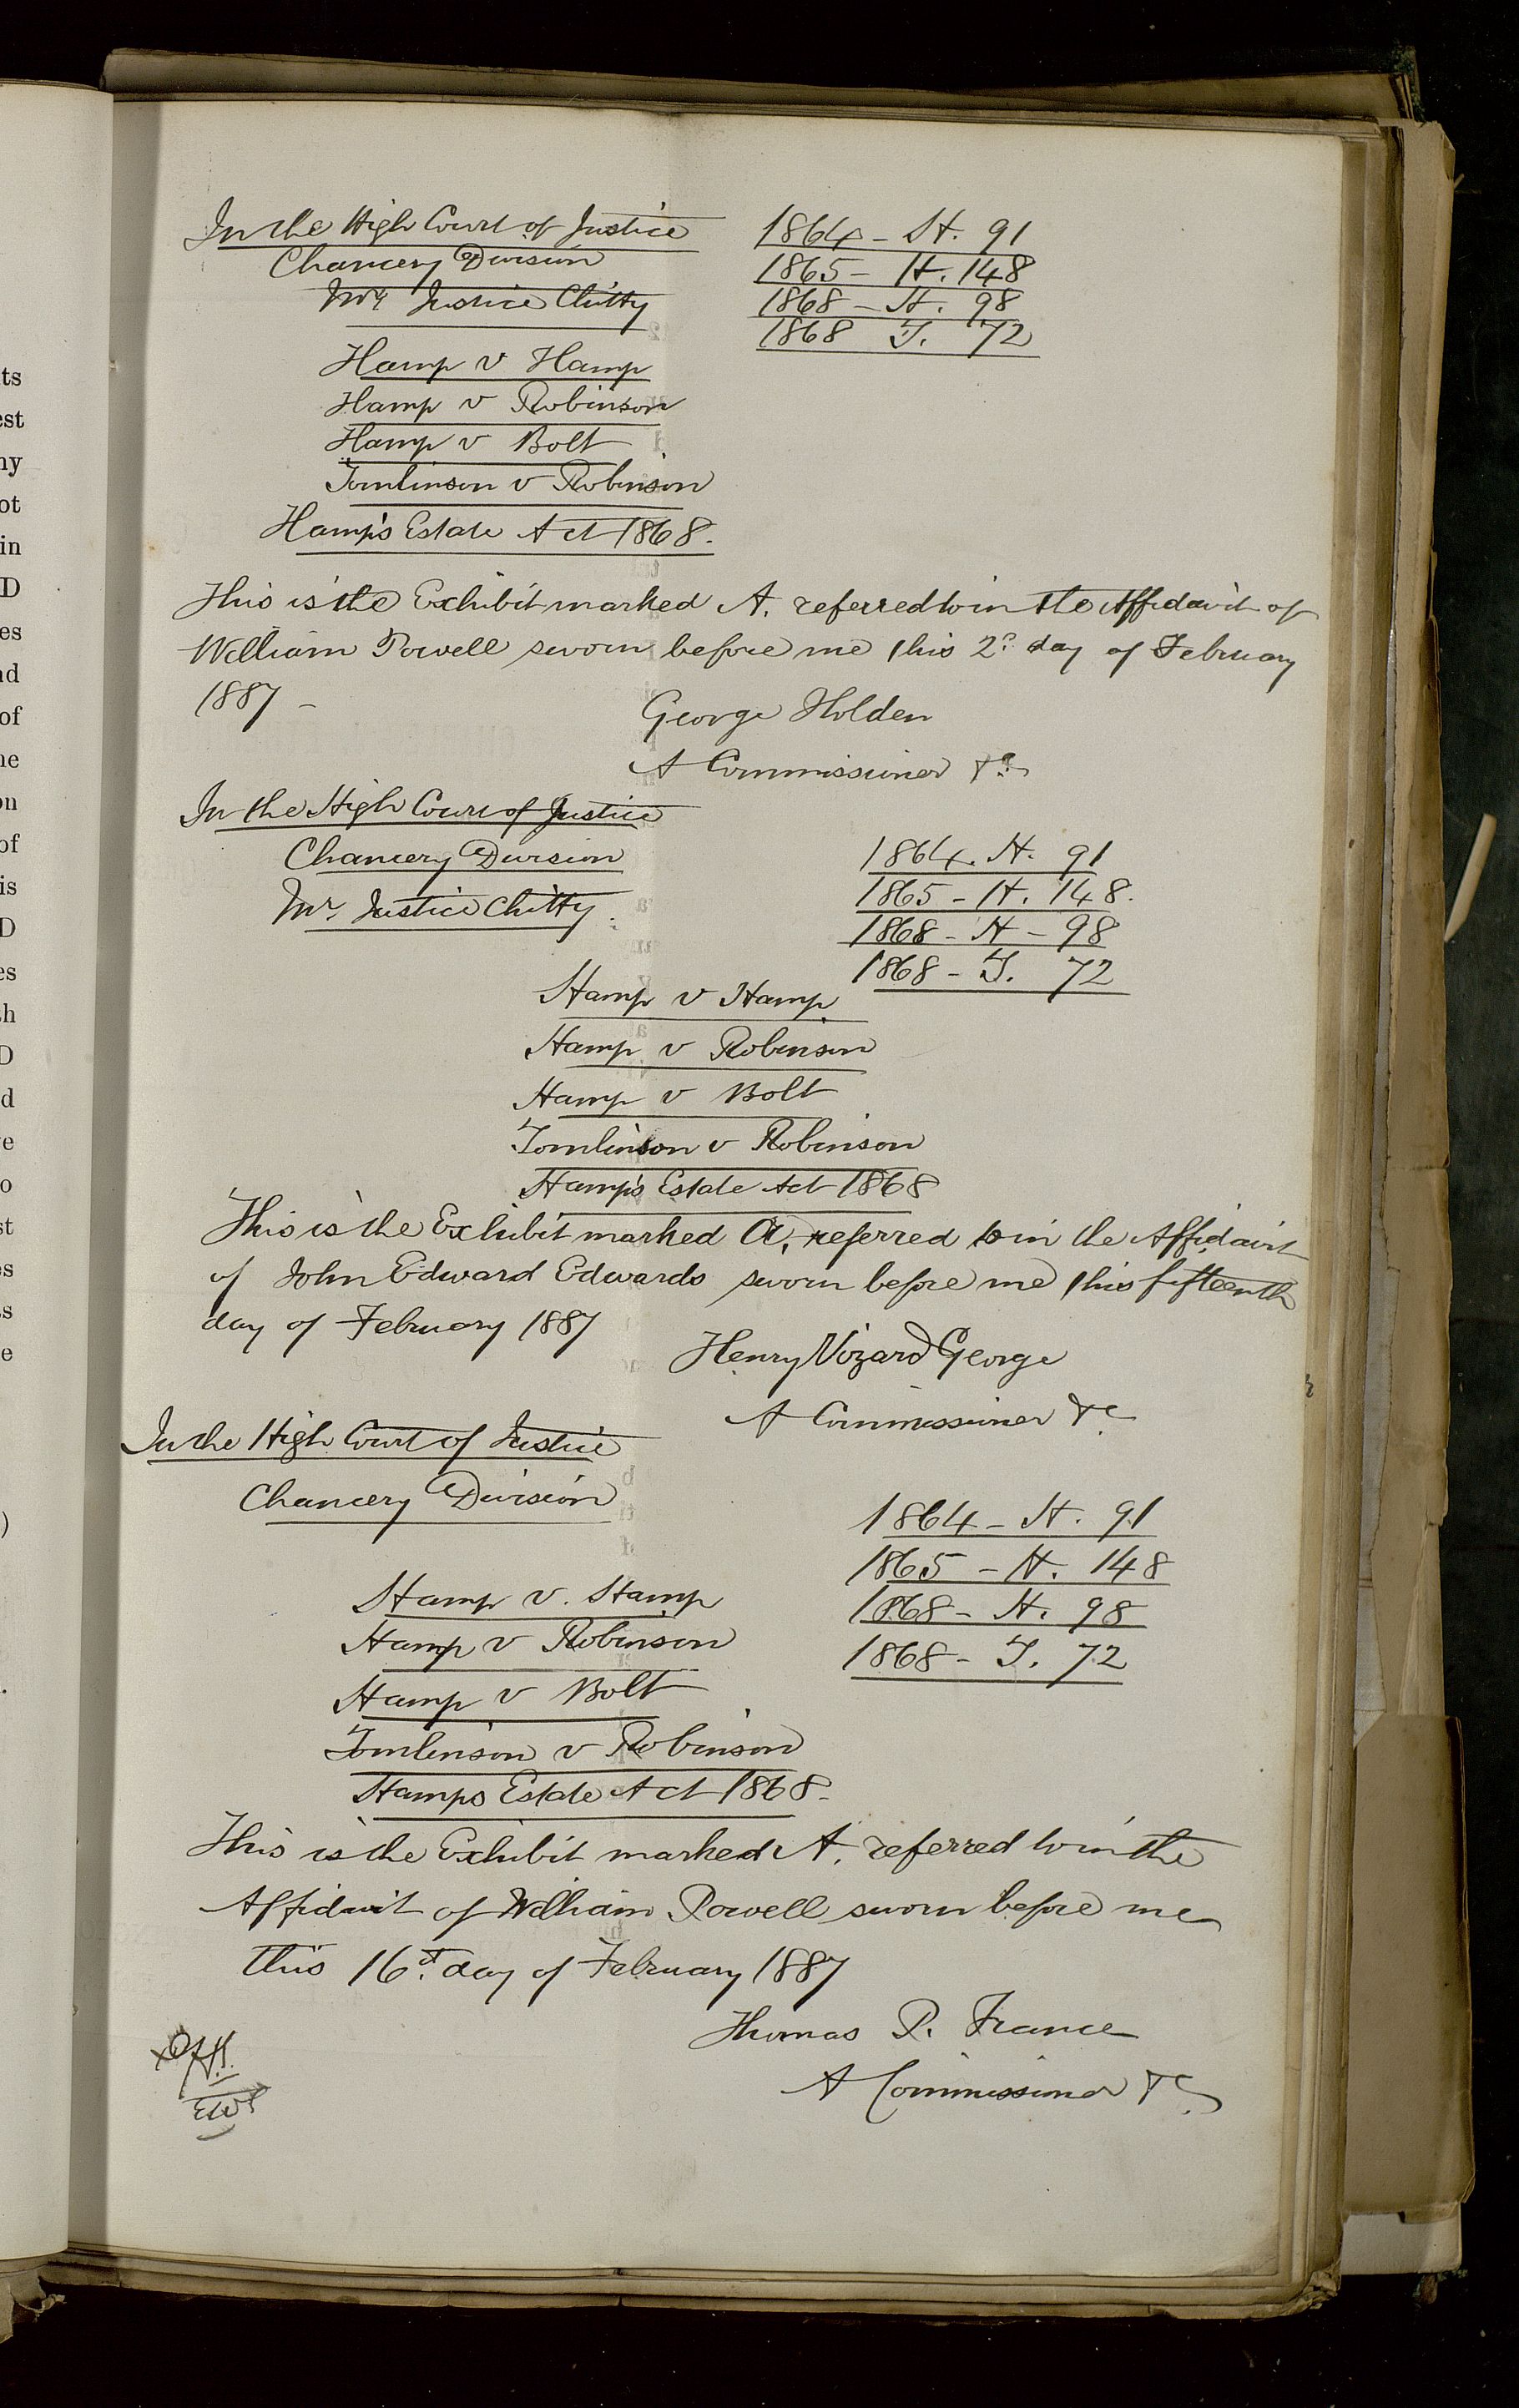 In the High Court of Justice
Chancery Division
Mr. Justice Chitty
1864 - H. 91
1865 - H. 148
1868 - H. 98
1868 T. 72
Hamp v Hamp
Hamp v Robinson
Hamp v Bolt
Tomlinson v Robinson
Hamp's Estate Act 1868.
This is the Exhibit marked A. referred to in the Affidavit of
William Powell sworn before me this 2d. day of February
1887 -
George Holden
A Commissioner &c.
In the High Court of Justice
Chancery Division
Mr. Justice Chitty
1864. H. 91
1865 - H. 148.
1868 - H - 98
1868 - T. 72
Hamp v Hamp
Hamp v Robinson
Hamp v Bolt
Tomlinson v Robinson
Hamp's Estate Act 1868
This is the Exhibit marked A. referred to in the Affidavit
of John Edward Edwards sworn before me this fifteenth
day of February 1887
Henry Vizard George
A Commissioner &c.
In the High Court of Justice
Chancery Division
1864 - H. 91
1865 - H. 148
1868 - H. 98
1868 - T. 72
Hamp v. Hamp
Hamp v Robinson
Hamp v Bolt
Tomlinson v Robinson
Hamps Estate Act 1868.
This is the Exhibit marked A. referred to in the
Affidavit of William Powell sworn before me
this 16th. day of February 1887
Thomas P. France
A Commissioner &c.